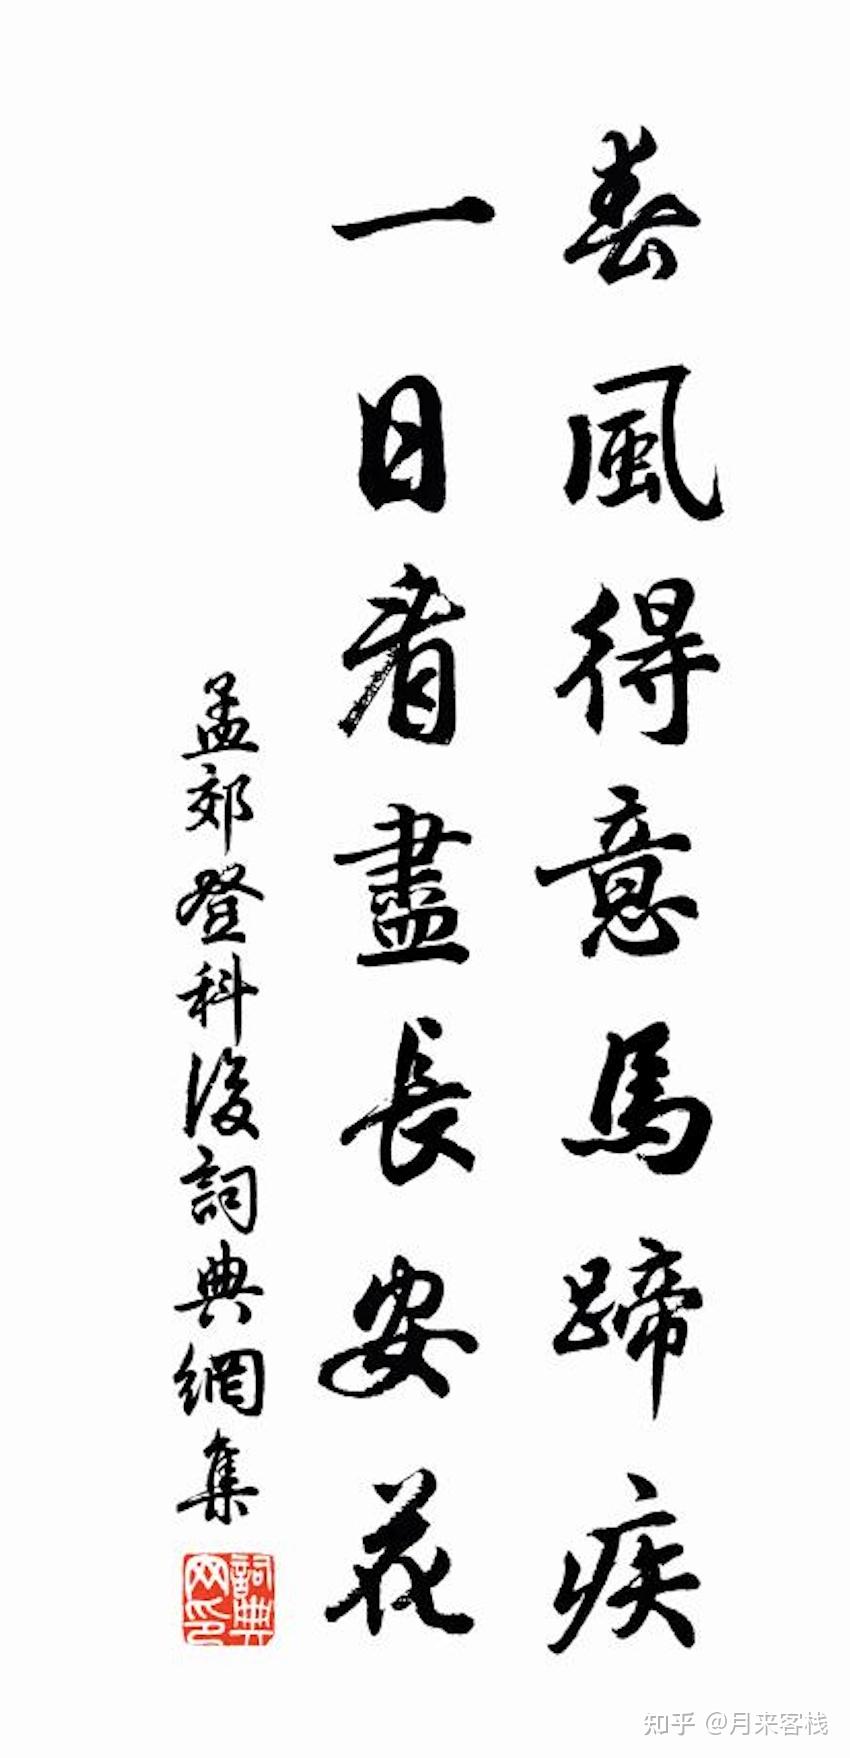 春風得意馬蹄疾
一日看盡長安花
孟郊登科後詞典網集
詞典网印
知乎 @月来客栈